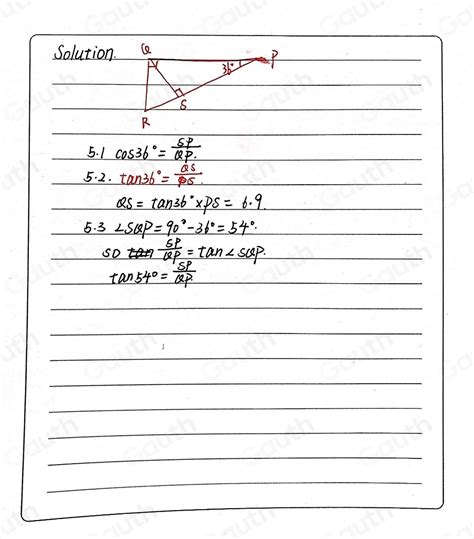 Solution.
Q
36°
P
S
R
5.1 cos36° = SP/QP.
5.2. tan36° = QS/PS.
QS = tan36° × PS = 6.9.
5.3 ∠SQP = 90° - 36° = 54°.
so tan SP/QP = tan∠SQP.
tan54° = SP/QP.
Gauth